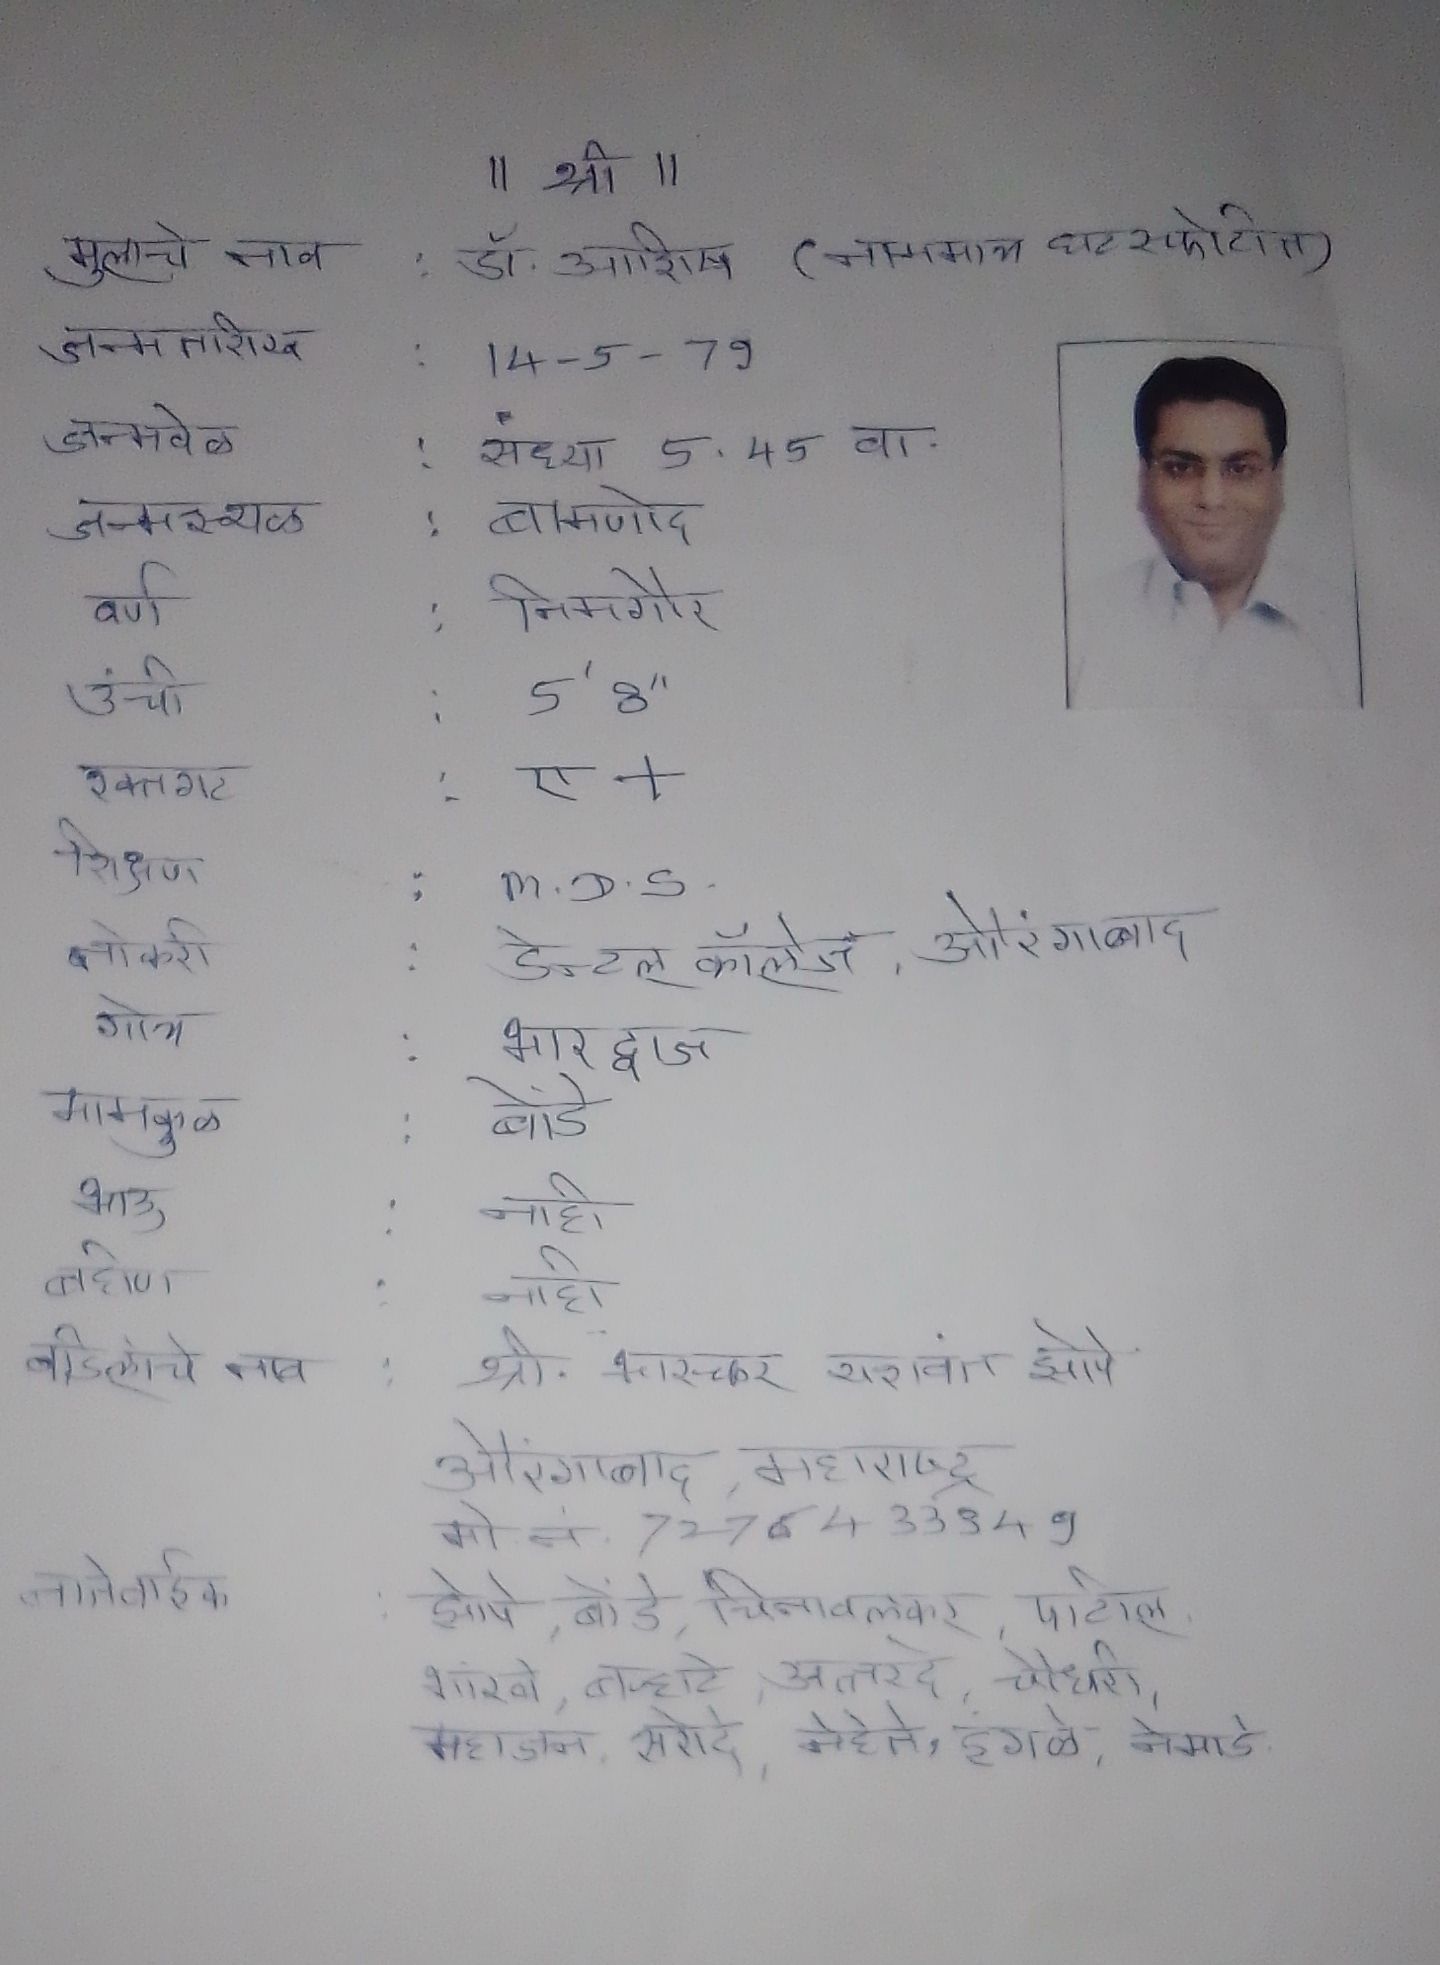 ॥ श्री ॥
मुलाचे नाव : डॉ. आशिष (नाममात्र घटस्फोटीत)
जन्मतारीख : 14-5-79
जन्मवेळ : संध्या 5.45 वा.
जन्मस्थळ : बामणोद
वर्ण : निमगौर
उंची : 5'8"
रक्तगट : ए +
शिक्षण : M.D.S.
नोकरी : डेन्टल कॉलेज, औरंगाबाद
गोत्र : भारद्वाज
मामकुळ : बोंडे
भाऊ : नाही
बहीण : नाही
वडिलांचे नाव : श्री. भास्कर यशवंत झोपे
औरंगाबाद, महाराष्ट्र
मो. नं. 7276433949
नातेवाईक : झोपे, बोंडे, चिनावलकर, पाटील,
भारंबे, बऱ्हाटे, अत्तरदे, चौधरी,
महाजन, सरोदे, नेहेते, इंगळे, नेमाडे.